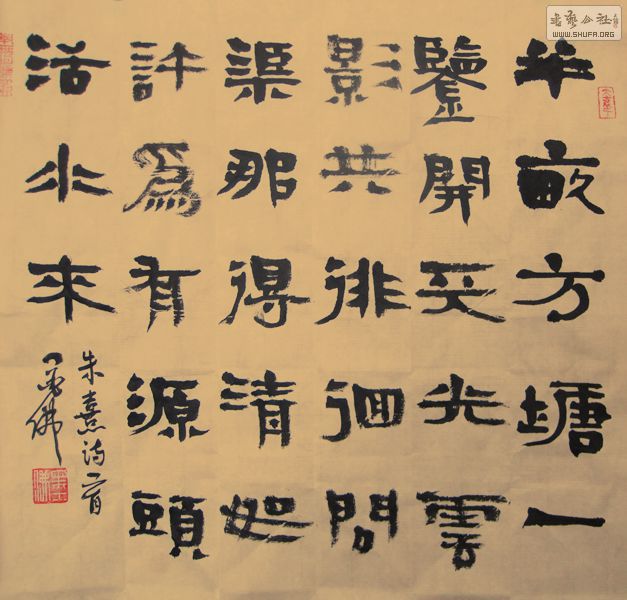 半畝方塘一
鑒開天光雲
影共徘徊問
渠那得清如
許爲有源頭
活水來
朱熹诗一首
書藝公社
WWW.SHUFA.ORG